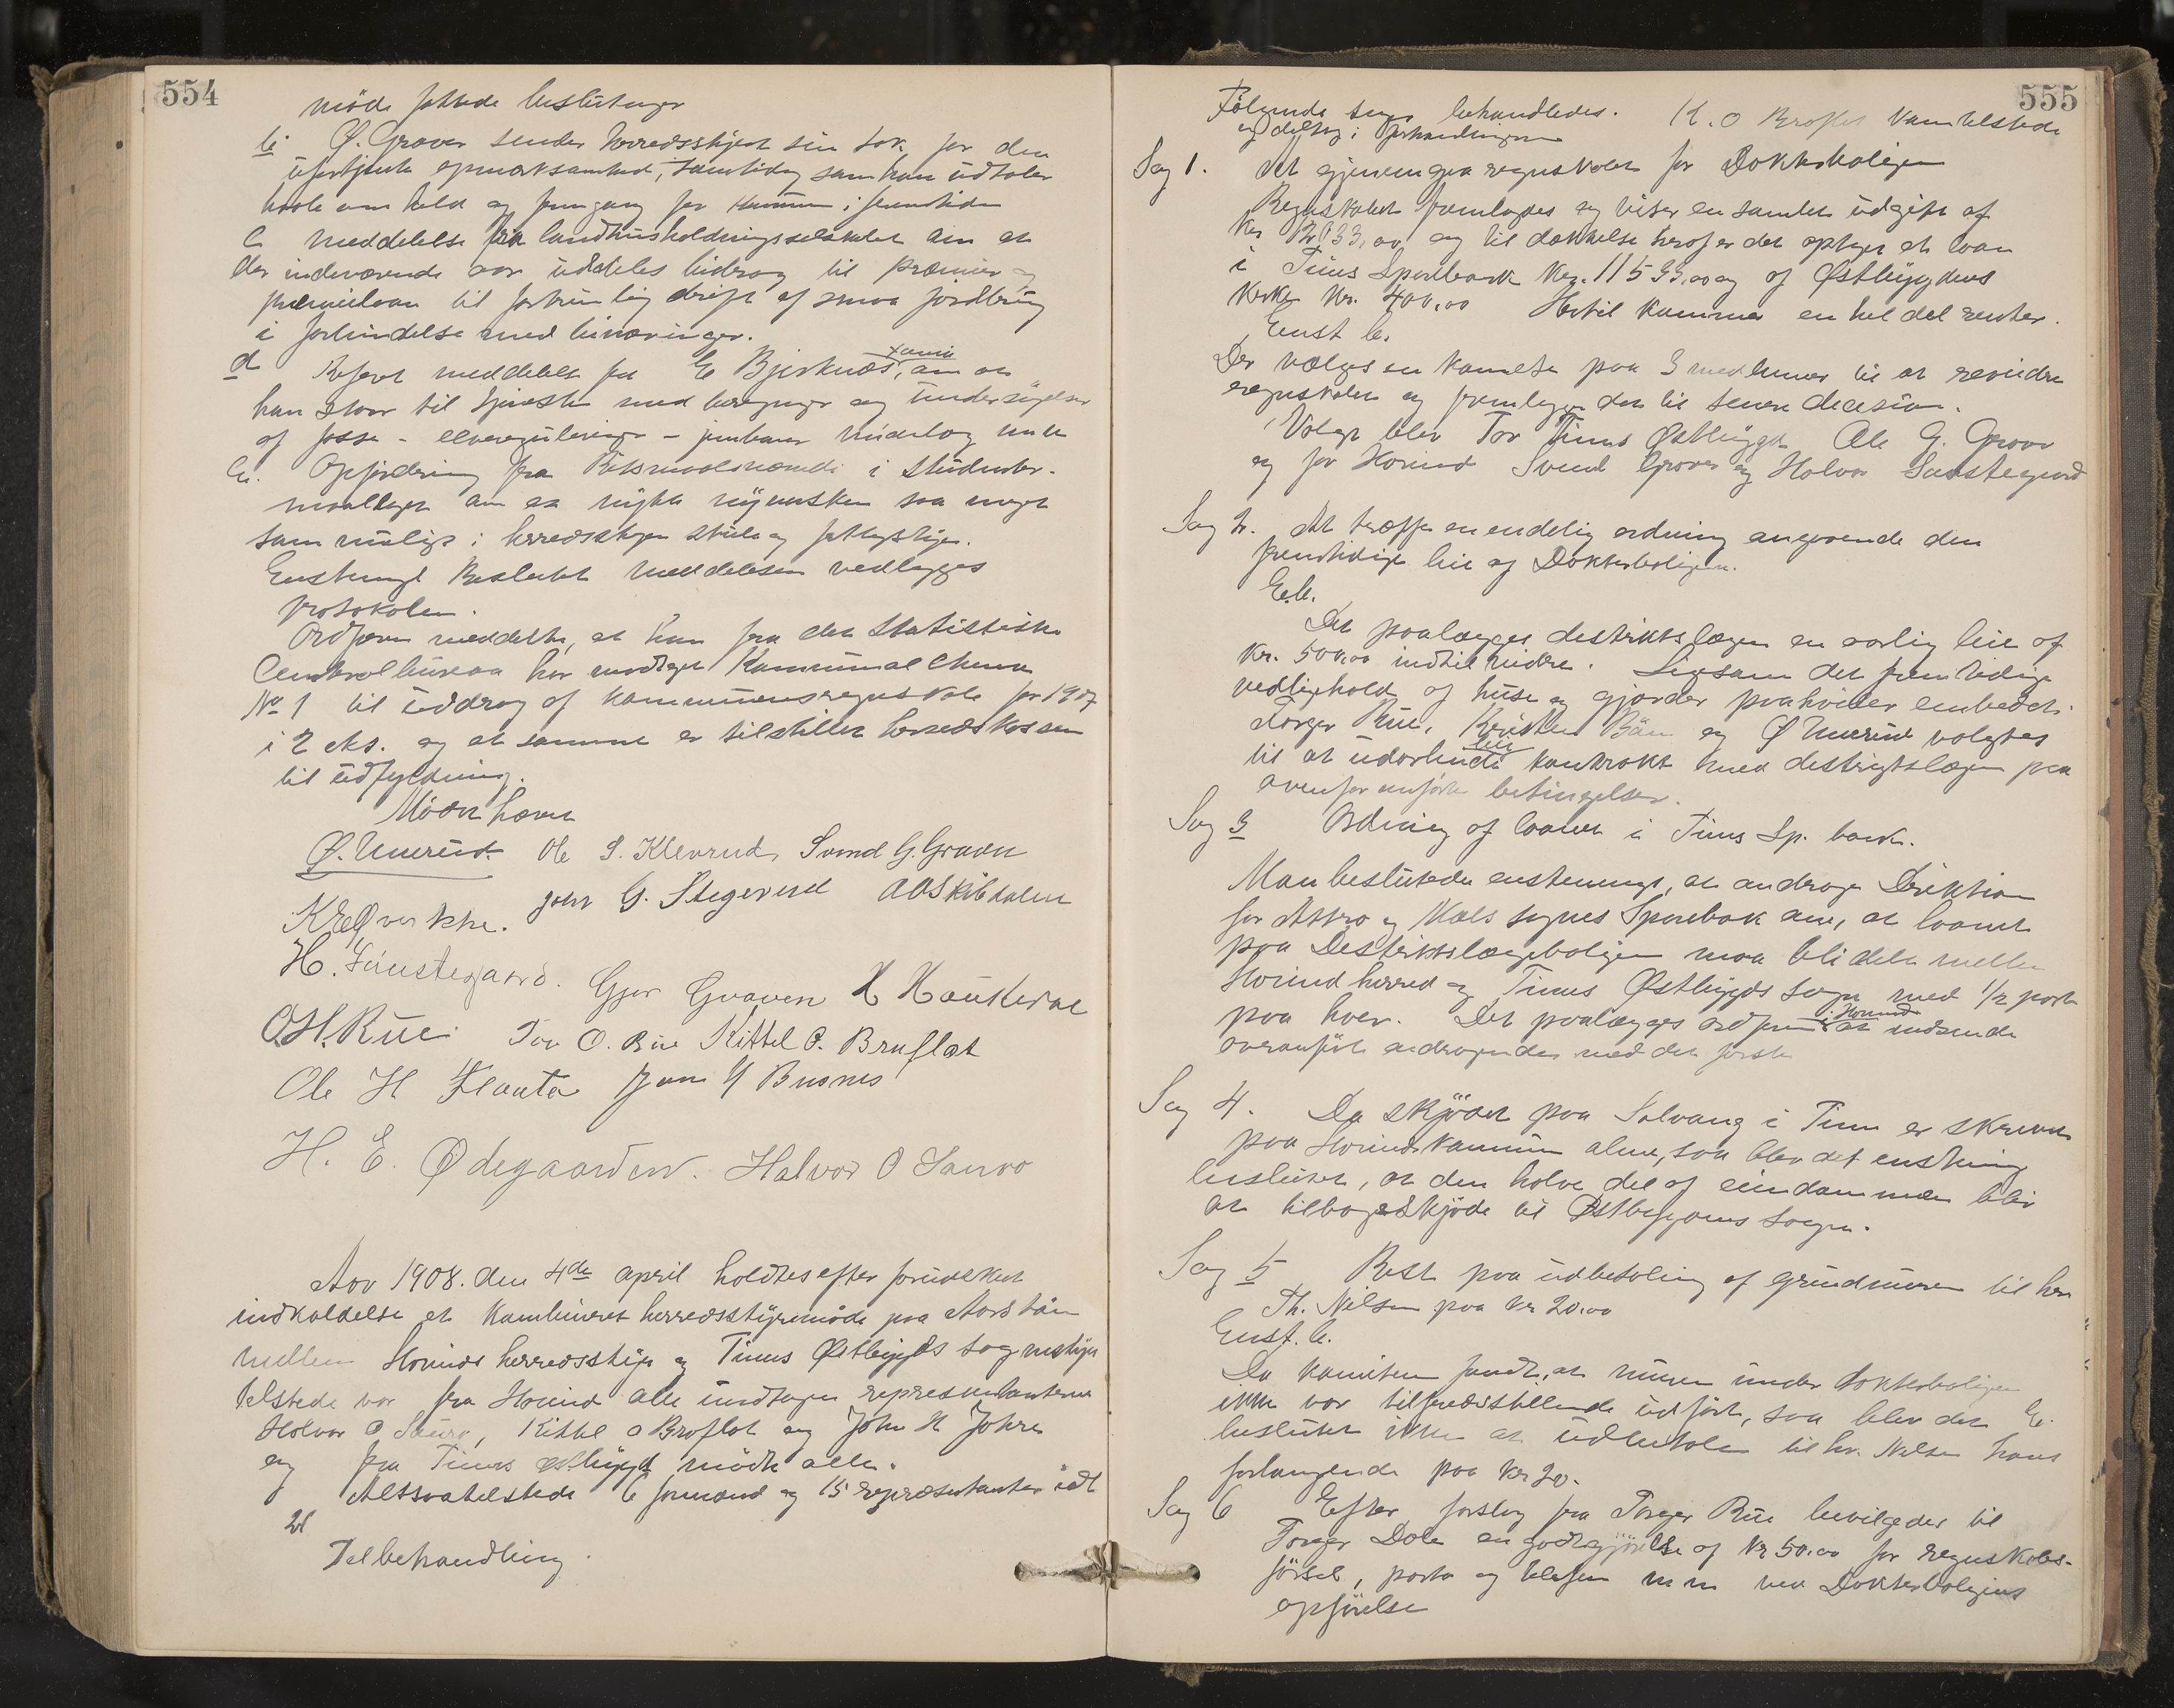 554
möde fattede beslutninger
b. Ø. Graver sender herredsstyret sin tak for den
ufortjente opmerksamhed, samtidig som han udtaler
haab om held og fremgang for kommunen i fremtiden
c meddelelse fra landhusholdningsselskabet om at
der indeværende aar uddeles bidrag til præmier og
præmielaan til fortrinlig drift af smaa jordbrug
i forbindelse med binæringer.
d Referert meddelelse fra E Bjerknæs, om at
han staar til tjeneste med beregninger og undersögelser
af fosse - elveregulerings -
e. Opfordring fra Riksmaalsnemndi i Studenter-
maallaget om at nytte nynorsken saa meget
som muligt i herredsstyren
Enstemmigt Besluttet meddelelsen vedlægges
protokolen.
Ordføren meddelte, at han fra det statistiske
Centralbureau har modtaget Kommunal Chema
No 1 til uddrag af kommunensregnskab for 1907
i 2 eks. og at samme er tilstillet herredskassen
til udfyldning.
Mödet hævet
Ø. Unerud. Ole S. Klevrud, Svend G. Graven
K E Øverkke. John G. Stegerud AOSkibdalen
H. Sunstegaard. Gjer Graven H Haukedal
O.H. Rue Tov O. Rue Kittel O. Bruflat
Ole H Flaata Jon H Busnes
H. E. Ødegaarden. Halvor O Sauro
Aar 1908. den 4de april holdtes efter forudskeet
indkaldelse et kombineret herredsstyremöde paa Aarstun
mellem Hovind herredsstyre og Tinns Østbygds sognestyre
tilstede var fra Hovind alle undtagen repræsentanterne
Halvor O Sauro, Kittel O Bruflat og John H Johre
og fra Tinns østbygd mödte alle.
Altsaa tilstede 6 formænd og 15 repræsentanter ialt
21
Til behandling.
555
Følgende sager behandledes. K. O Bruflat var tilstede
og deltog i forhandlingerne
Sag 1. At gjennemgaa regnskabet for Doktorboligen
Regnskabet fremlagdes og viser en samlet udgift af
og til dækkelse heraf er det optaget et laan
i Tinns Sparebank Kr. 11533,00 og af Østbygdens
Kirke Kr. 400,00 Hertil kommer en hel del renter.
Enst b.
Der vælges en komite paa 3 medlemer til at revidere
regnskabet og fremlægge det til senere decision.
Valgt blev For Tinns Østbygd Ole G. Graver
og for Hovind Svend Graver og Halvor Sunstegaard
Sag 2. At træffe en endelig ordning angaaende den
fremtidige leie af Doktorboligen.
E.b.
Det paalægges destriktslægen en aarlig leie af
Kr. 500,00 indtil videre. Ligesom det fremtidige
vedligehold af huse og gjærder paahviler embedet.
Torger Rue, Kristen Bøen og Ø Unerud valgtes
til at udarbeide leie kontrakt med destriktslægen paa
ovenfor anførte betingelser.
Sag 3 Ordning af laanet i Tinns Sp. bank.
Man besluttede enstemmigt, at andrage Direktion
for Attraa og Mæls sognes Sparebank om, at laanet
paa Destriktslægeboligen maa bli delt mellem
Hovind herred og Tinns Østbygds sogn med 1/2 part
paa hver. Det paalægges ordføren i Hovind at indsende
ovenanførte andragende med det første
Sag 4. Da skjödet paa Solvang i Tinn er skrevet
paa Hovinds kommun alene, saa blev det enstemmig
besluttet, at den halve del af eiendommen blir
at tilbageskjöde til Østbygdens sogn.
Sag 5 Rest paa udbetaling af grundmuren til hr
Th. Nilsen paa kr 20.00
Enst. b.
Da komiteen fandt, at muren under doktorboligen
ikke var tilfredsstillende udført, saa blev det E.
besluttet ikke at udbetale til hr. Nilsen hans
forlangende paa kr 20.
Sag 6 Efter forslag fra Torger Rue bevilgedes til
Torger Dale en godtgjörelse af kr 50.00 for regnskabs-
førsel, porto og telefon m m ved Doktorboligens
opførelse